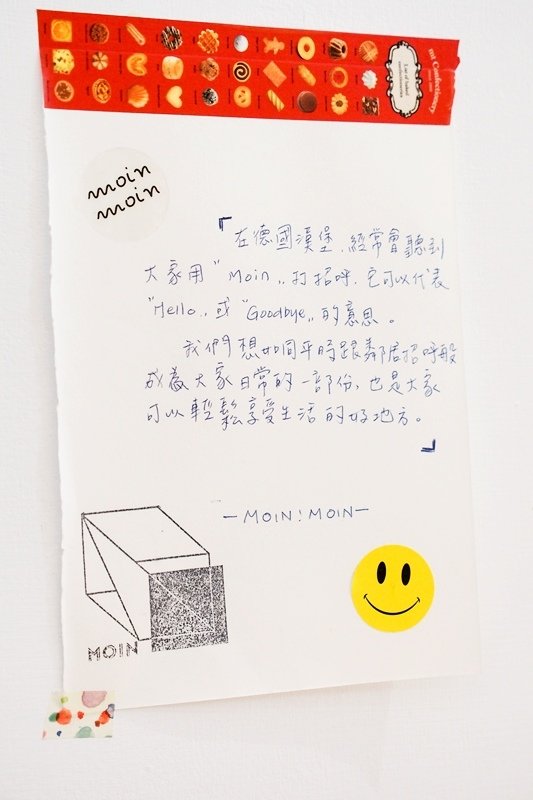 m's Confectionary
List of baked confectioneries
moin
moin
「在德國漢堡,經常會聽到
大家用"Moin"打招呼,它可以代表
"Hello"或"Goodbye"的意思。
我們想如同平時跟鄰居招呼般
成為大家日常的一部份,也是大家
可以輕鬆享受生活的好地方。
」
-MOIN!MOIN-
MOIN